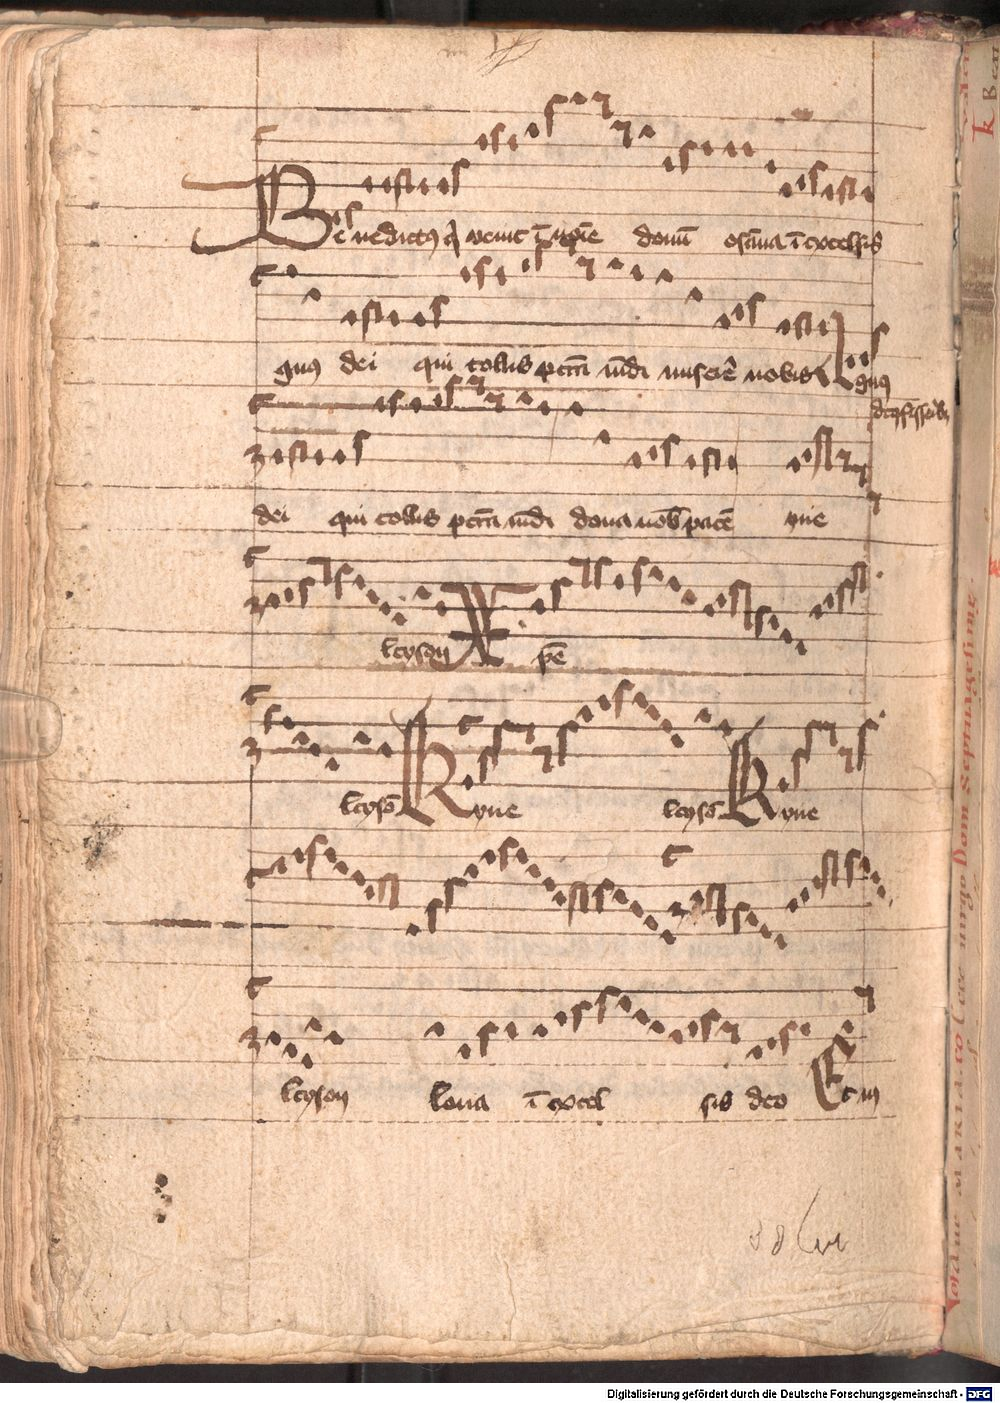 Benedictꝰ q̄ venit ī noīe domī osāna ī excelsis
gnus dei qui tollis pctā mūdi miserē nobis Agnus
dei qui tollis pctā mūdi dona nob̄ pacē yrie
leyson Xpē
leysō Kyrie leysō Kyrie
leyson loria ī excel sis deo Et in
Digitalisierung gefördert durch die Deutsche Forschungsgemeinschaft - DFG